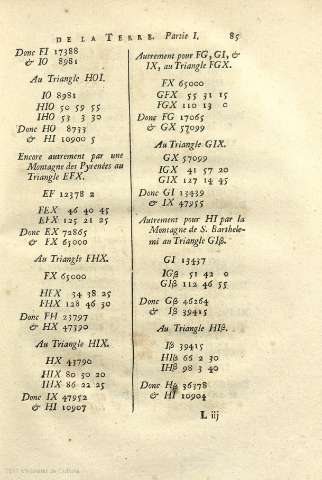 DE LA TERRE. Partie I. 85
Donc FI 17388
& IO 8981
Au Triangle HOI.
IO 8981
HIO 50 59 55
IHO 53 3 30
Donc HO 8733
& HI 10900 5
Encore autrement par une
Montagne des Pyrenées au
Triangle EFX.
EF 12378 2
FEX 46 40 45
EFX 125 21 25
Donc EX 72865
& FX 65000
Au Triangle FHX.
FX 65000
HFX 34 38 25
FHX 128 46 30
Donc FH 23797
& HX 47390
Au Triangle HIX.
HX 43790
HIX 80 50 20
IHX 86 22 25
Donc IX 47952
& HI 10907
Autrement pour FG, GI, &
IX, au Triangle FGX.
FX 65000
GFX 55 31 15
FGX 110 13 0
Donc FG 17065
& GX 57099
Au Triangle GIX.
GX 57099
IGX 41 57 20
GIX 127 14 45
Donc GI 13439
& IX 47955
Autrement pour HI par la
Montagne de S. Barthele-
mi au Triangle GIß.
GI 13437
IGß 51 42 0
GIß 112 46 55
Donc Gß 46264
& Iß 39415
Au Triangle HIß.
Iß 39415
HIß 66 2 30
IHß 98 3 40
Donc Hß 36378
& HI 10904
L iij